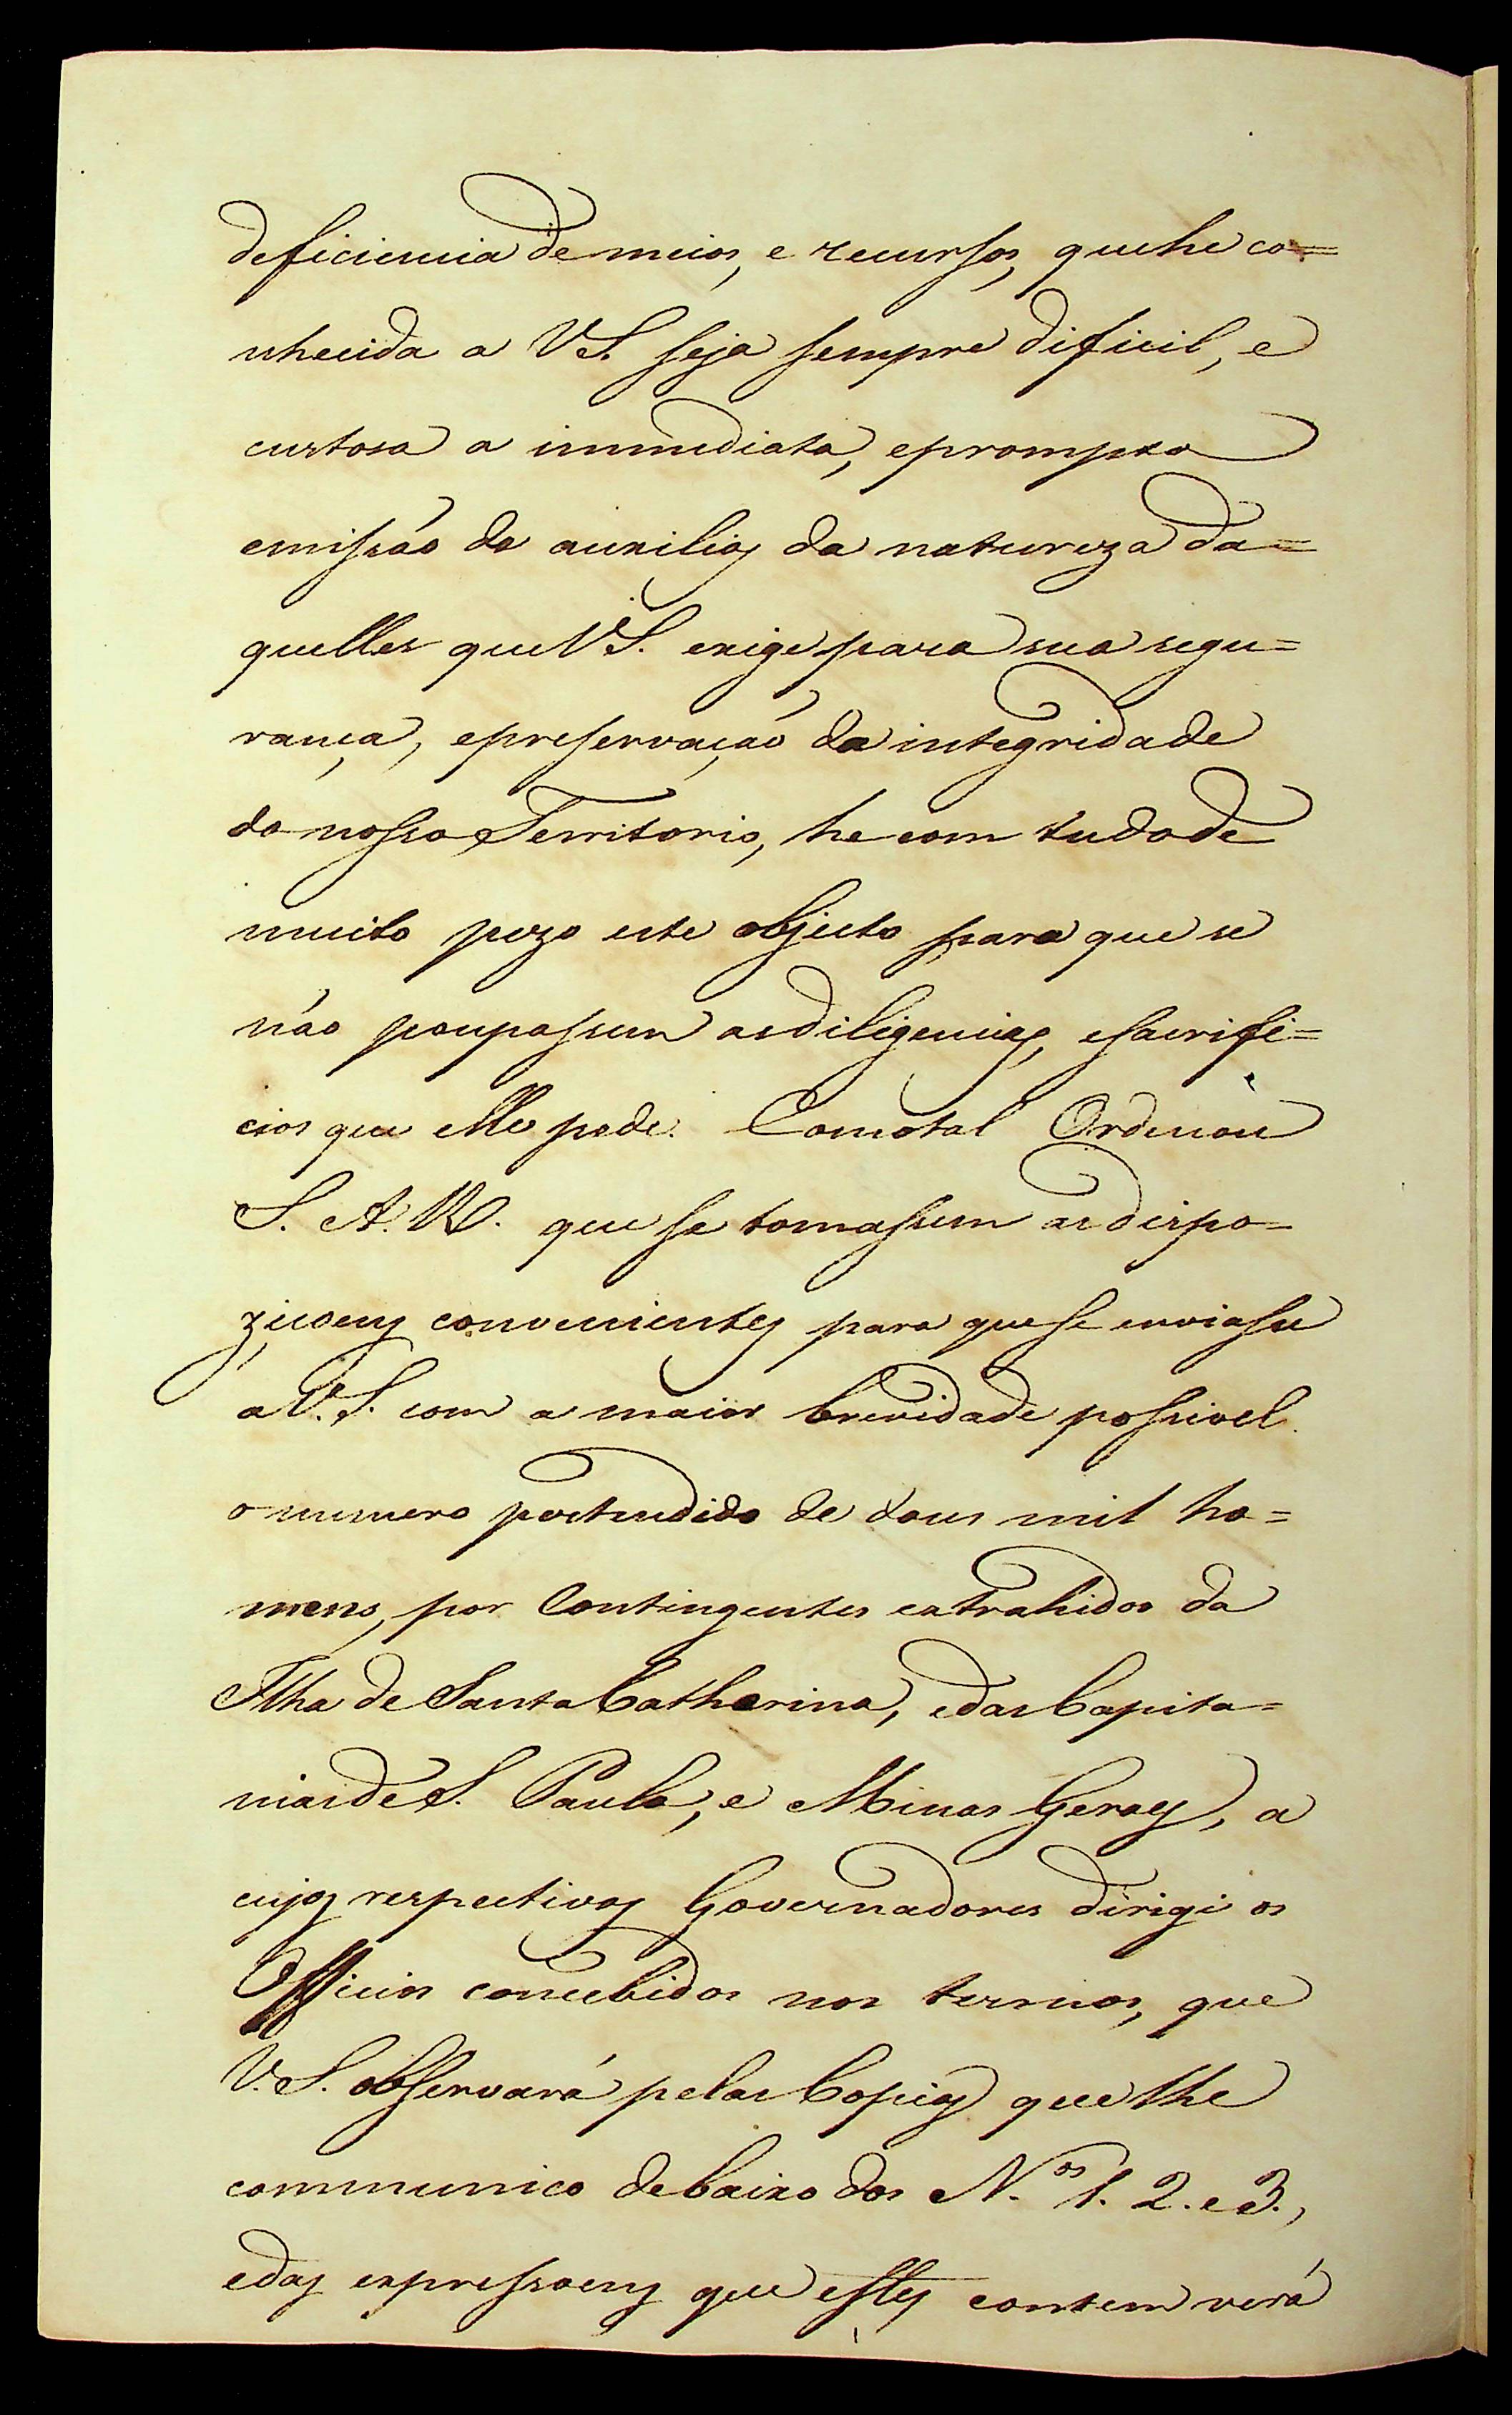 deficiencia de meios, e recursos, que he co=
nhecida a VS. seja sempre dificil, e
custosa a immediata, e prompta
emissão de auxilios da natureza da=
quelles que VS. exige para sua segu=
rança, e preservação da integridade
do nosso Territorio, he com tudo de
muito pezo este objecto para que se
não poupassem as diligencias, e sacrifi=
cios que elle pede. Como tal Ordenou
S. A. R. que se tomassem as dispo=
ziçoens convenientes para que se enviasse
a V. S. com a maior brevidade possivel
o numero pertendido de dous mil ho=
mens, por Contingentes extrahidos da
Ilha de Santa Catharina, e das Capita=
nias de S. Paulo, e Minas Geraes, a
cujos respectivos Governadores dirigi os
Officios concebidos nos termos, que
V. S. observará pelas Copias que lhe
communico debaixo dos N.os 1. 2. e 3.,
e das expressoens que estes contem verá